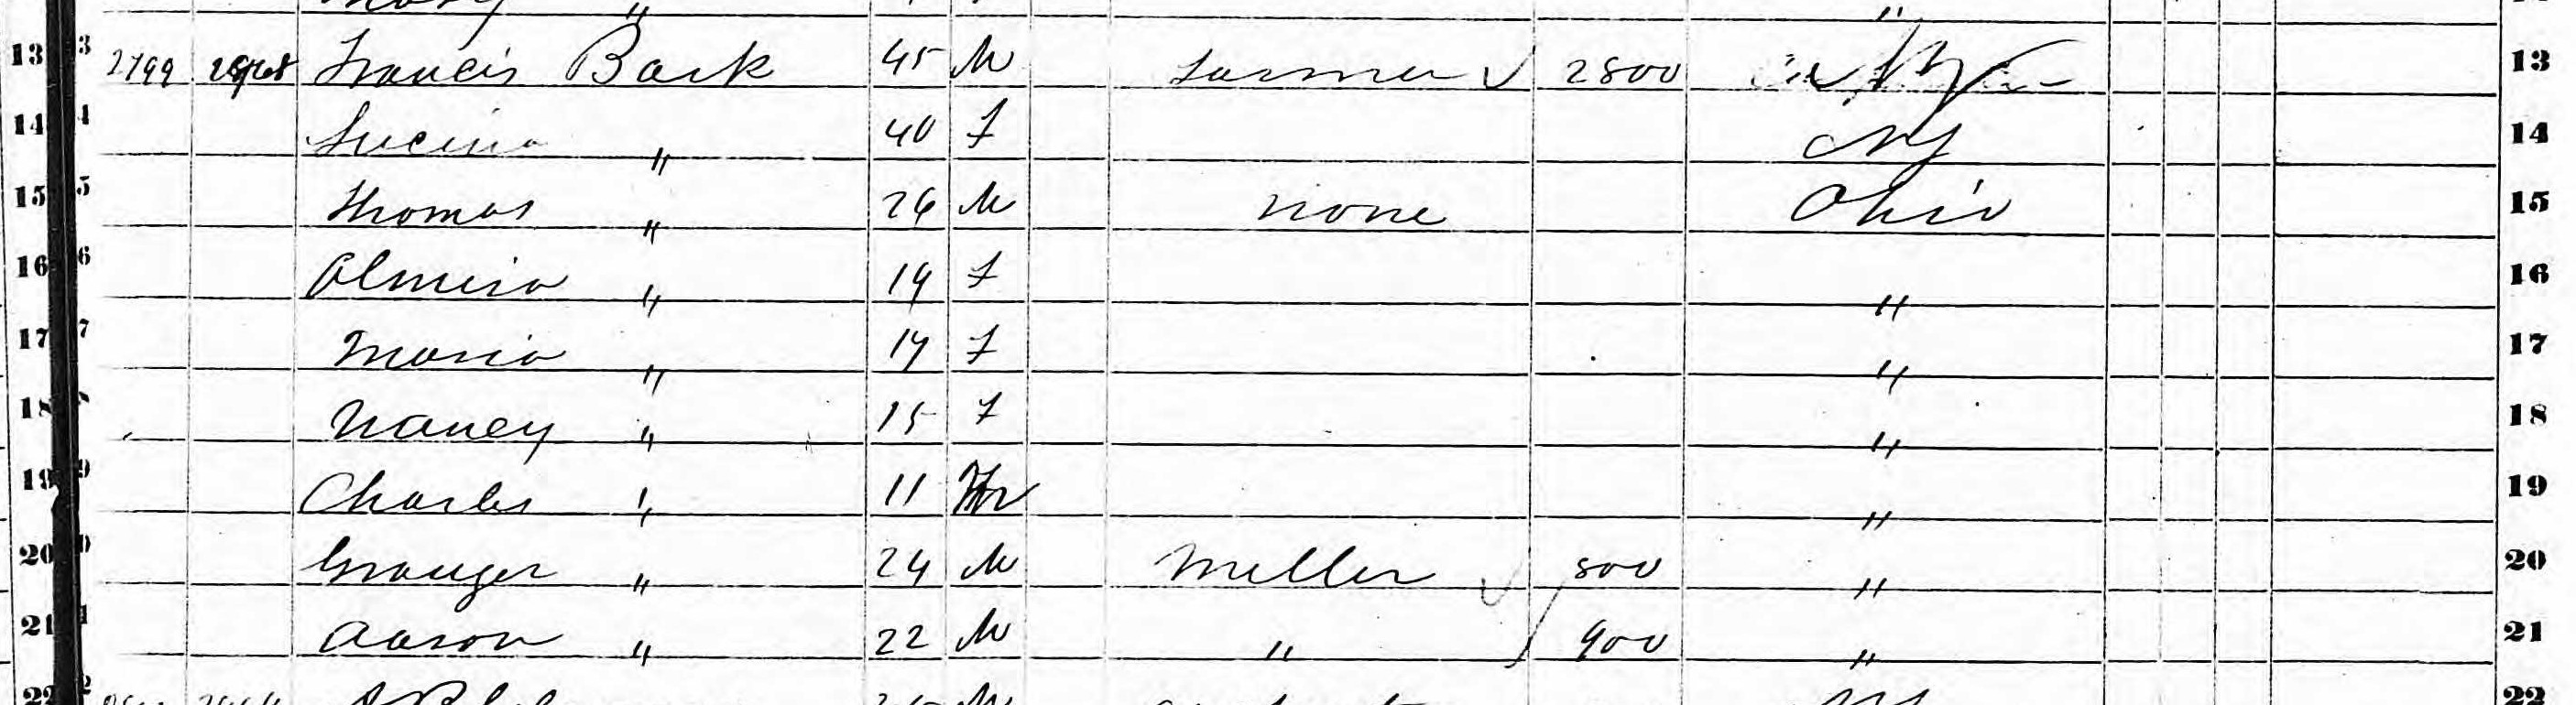 13 2799 Francis Back 45 M Farmer 2800 13
14 Lucina " 40 f NY 14
15 Thomas " 26 M none Ohio 15
16 Almira " 19 f " 16
17 Maria " 17 f " 17
18 Nancy " 15 f " 18
19 Charles " 11 M " 19
20 Granger " 24 M Miller 800 " 20
21 Aaron " 22 M " 900 " 21
22 22